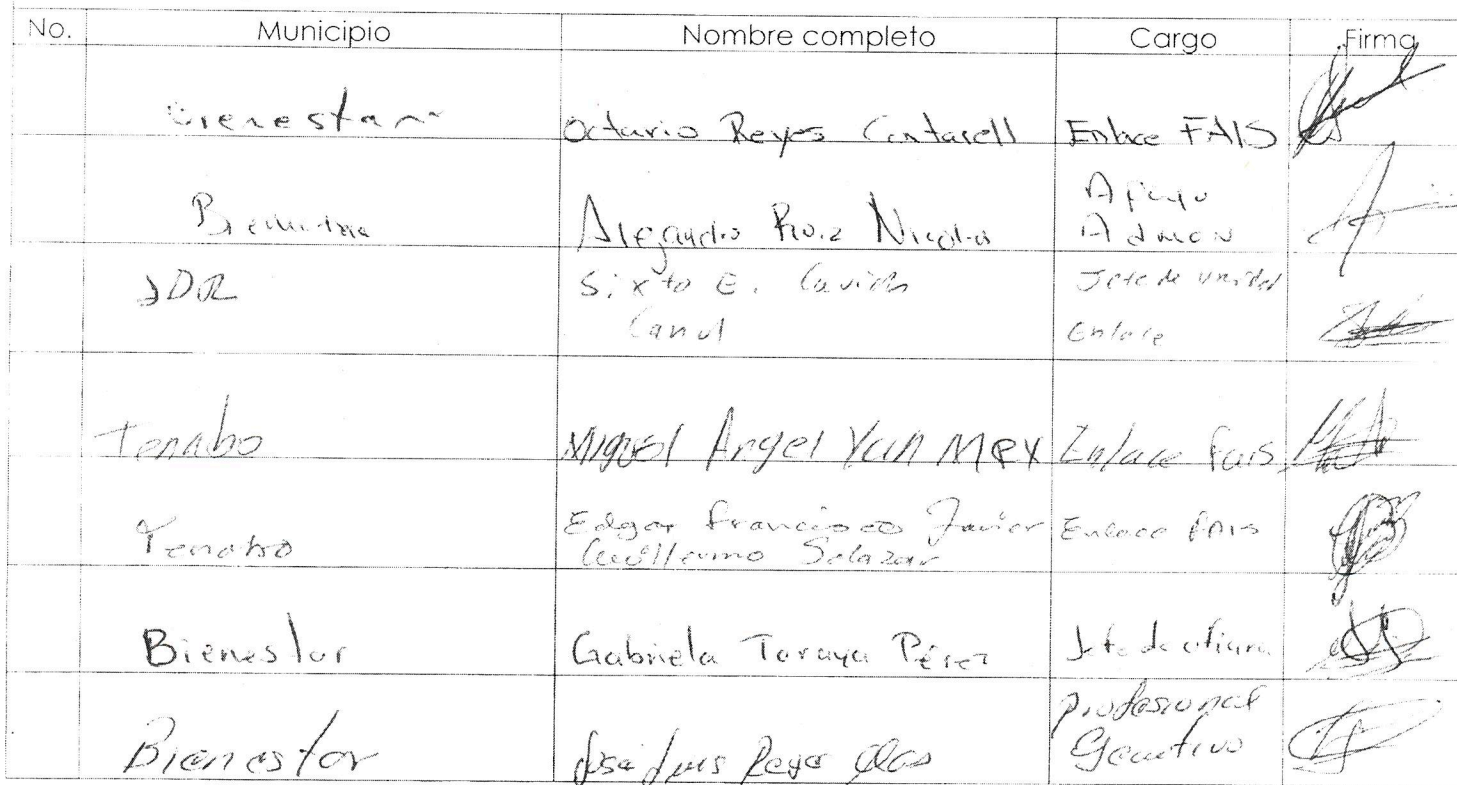 No. Municipio Nombre completo Cargo Firma
Bienestar Octavio Reyes Cantarell Enlace FAIS
Bienestar Alejandro Ruiz Nicolas Apoyo
Admon
Sixto E. Jefe de Unidad
Canul Enlace
Tenabo Miguel Angel Yan Mex Enlace fais
Tenabo Edgar Francisco Javier Enlace FAIS
Guillermo Salazar
Bienestar Gabriela Toraya Pérez Jefe de oficina
Bienestar José Luis Reyes Profesional
Ejecutivo